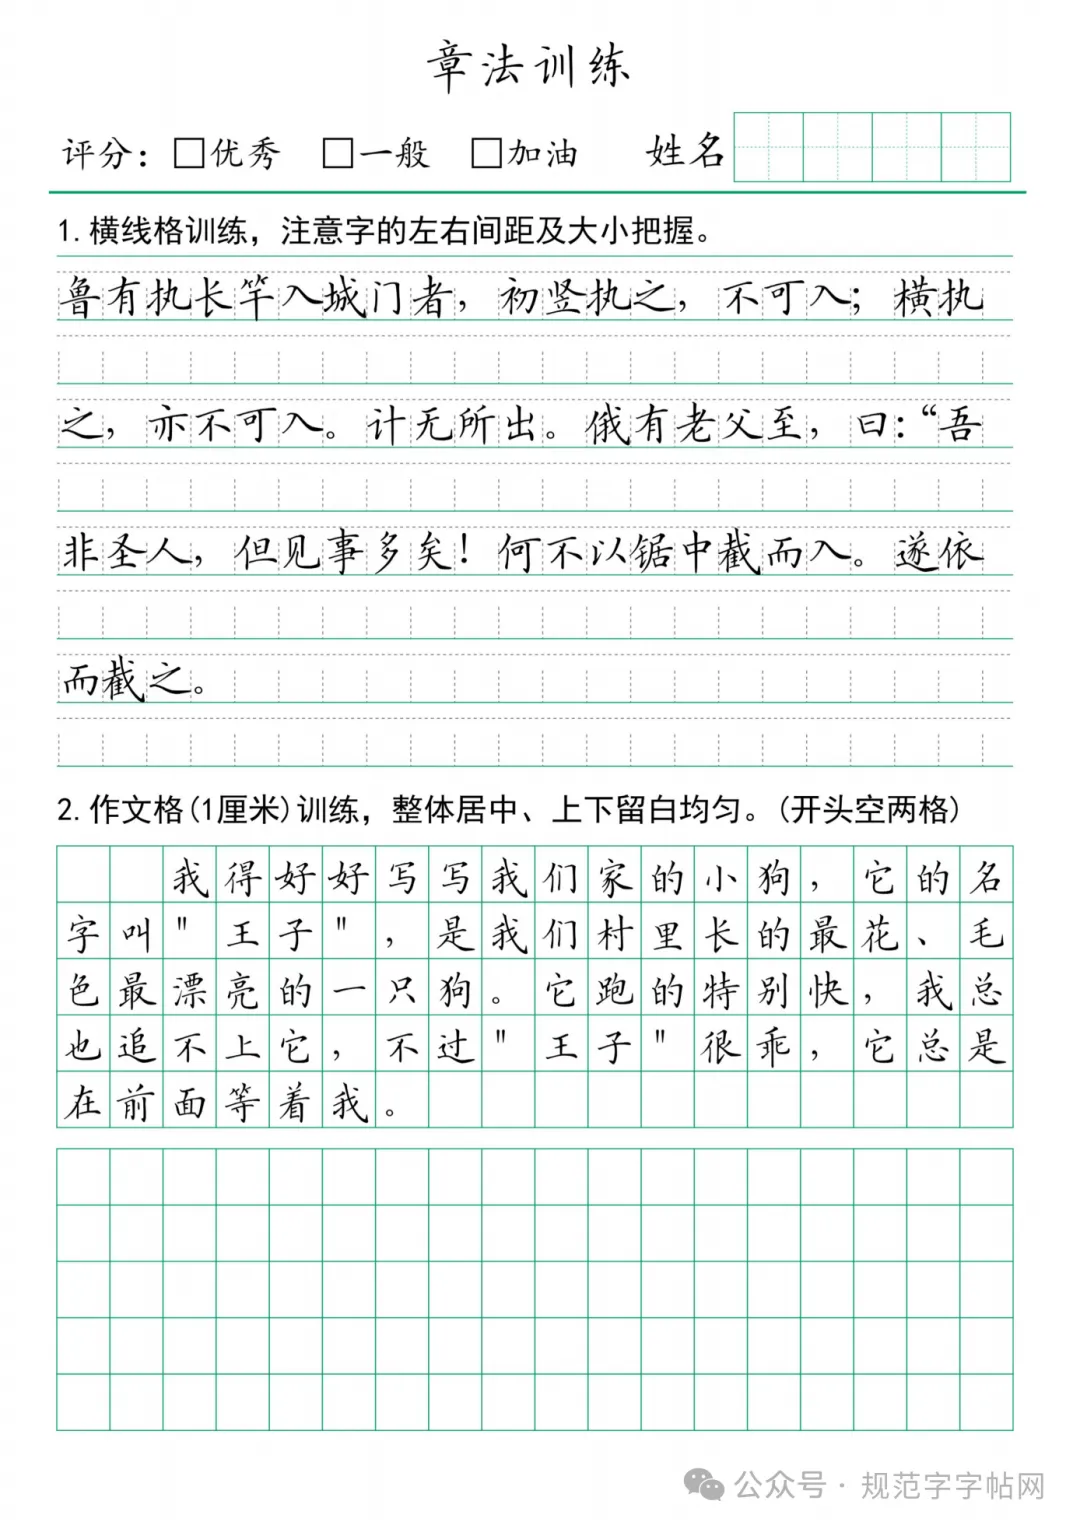 章法训练
评分：□优秀 □一般 □加油 姓名
1.横线格训练，注意字的左右间距及大小把握。
鲁有执长竿入城门者，初竖执之，不可入；横执
之，亦不可入。计无所出。俄有老父至，曰：“吾
非圣人，但见事多矣！何不以锯中截而入。遂依
而截之。
2.作文格(1厘米)训练，整体居中、上下留白均匀。(开头空两格)
我得好好写写我们家的小狗，它的名
字叫"王子"，是我们村里长的最花、毛
色最漂亮的一只狗。它跑的特别快，我总
也追不上它，不过"王子"很乖，它总是
在前面等着我。
公众号·规范字字帖网